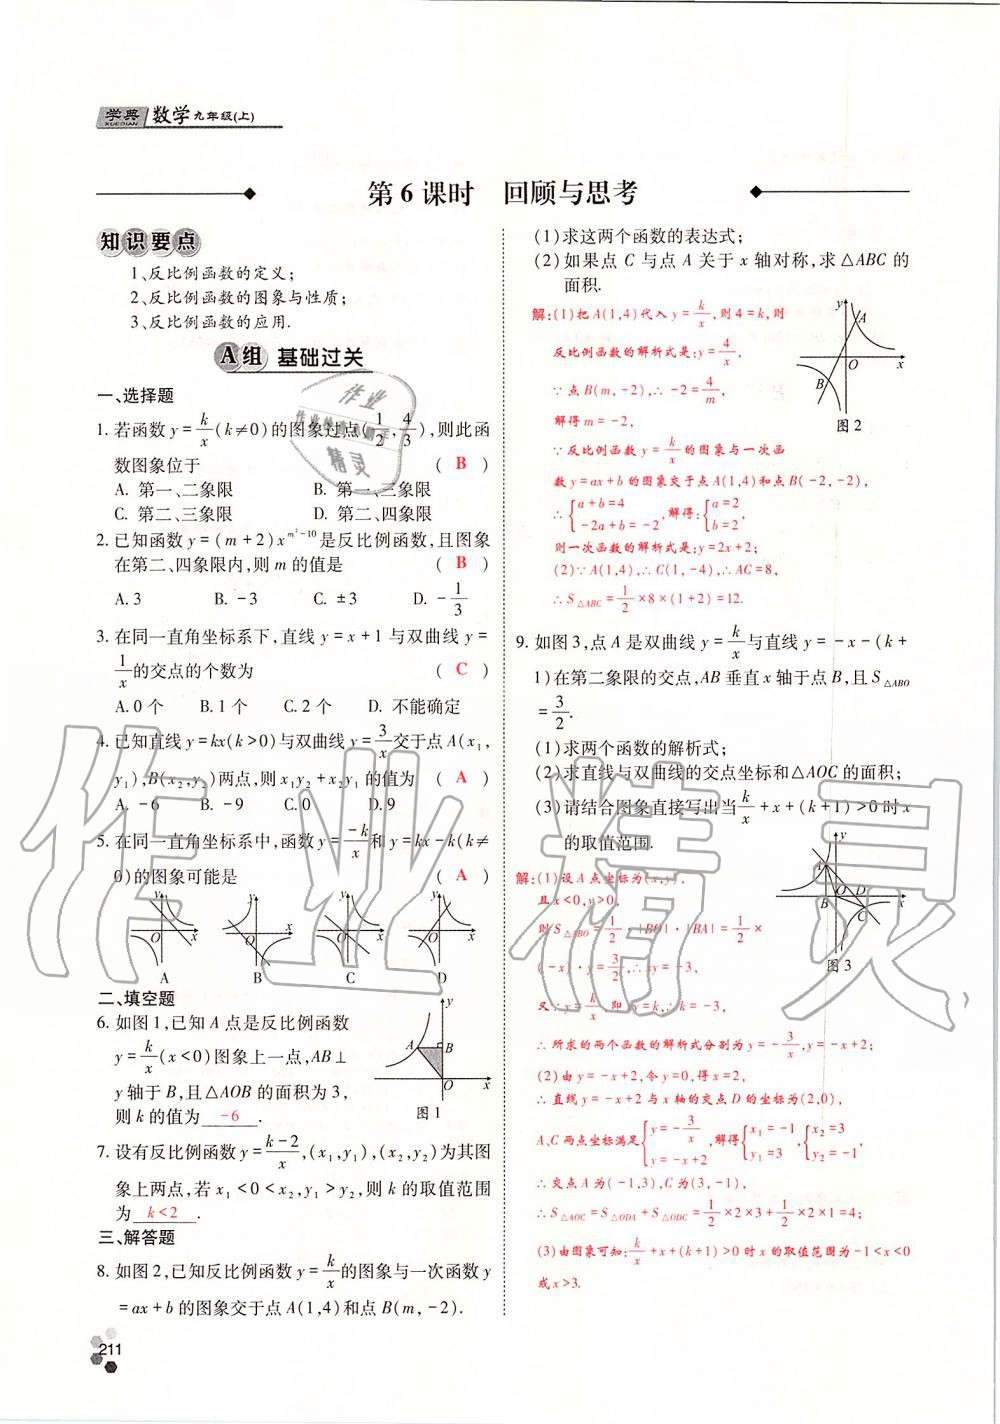 学典 数学九年级(上)
XUEDIAN
第6课时 回顾与思考
知识要点
1、反比例函数的定义;
2、反比例函数的图象与性质;
3、反比例函数的应用.
A组 基础过关
一、选择题
1. 若函数 y=k/x(k≠0)的图象过点(1/2,4/3),则此函
数图象位于 ( B )
A. 第一、二象限 B. 第一、三象限
C. 第二、三象限 D. 第二、四象限
2. 已知函数 y=(m+2)x^(m²-10)是反比例函数,且图象
在第二、四象限内,则 m 的值是 ( B )
A. 3 B. -3 C. ±3 D. -1/3
3. 在同一直角坐标系下,直线 y=x+1 与双曲线 y=
1/x的交点的个数为 ( C )
A. 0 个 B. 1 个 C. 2 个 D. 不能确定
4. 已知直线 y=kx(k>0)与双曲线 y=3/x交于点 A(x₁,
y₁),B(x₂,y₂)两点,则 x₁y₂+x₂y₁ 的值为 ( A )
A. -6 B. -9 C. 0 D. 9
5. 在同一直角坐标系中,函数 y=-k/x和 y=kx-k(k≠
0)的图象可能是 ( A )
y x O y x O y x O y x O
A B C D
二、填空题
6. 如图1,已知 A 点是反比例函数
y=k/x(x<0)图象上一点,AB⊥
y 轴于 B,且△AOB 的面积为 3,
则 k 的值为 -6 .
y A B O x
图 1
7. 设有反比例函数 y=k-2/x,(x₁,y₁),(x₂,y₂)为其图
象上两点,若 x₁<0<x₂,y₁>y₂,则 k 的取值范围
为 k<2 .
三、解答题
8. 如图2,已知反比例函数 y=k/x的图象与一次函数 y
=ax+b 的图象交于点 A(1,4)和点 B(m,-2).
211
(1)求这两个函数的表达式;
(2)如果点 C 与点 A 关于 x 轴对称,求△ABC 的
面积.
解:(1)把 A(1,4)代入 y=k/x,则 4=k,则
反比例函数的解析式是:y=4/x,
∵点 B(m,-2),∴-2=4/m,
解得 m=-2,
∵反比例函数 y=k/x的图象与一次函
数 y=ax+b 的图象交于点 A(1,4)和点 B(-2,-2),
∴{a+b=4
-2a+b=-2,解得:{a=2
b=2,
则一次函数的解析式是:y=2x+2;
(2)∵A(1,4),∴C(1,-4),∴AC=8,
∴S△ABC=1/2×8×(1+2)=12.
y A O x B
图 2
9. 如图3,点 A 是双曲线 y=k/x与直线 y=-x-(k+
1)在第二象限的交点,AB 垂直 x 轴于点 B,且 S△ABO
=3/2.
(1)求两个函数的解析式;
(2)求直线与双曲线的交点坐标和△AOC 的面积;
(3)请结合图象直接写出当k/x+x+(k+1)>0时 x
的取值范围.
解:(1)设 A 点坐标为(x,y),
且 x<0,y>0,
则 S△ABO=1/2·|BO|·|BA|=1/2×
(-x)·y=3/2,∴xy=-3,
又∵y=k/x,即 xy=k,∴k=-3,
∴所求的两个函数的解析式分别为 y=-3/x,y=-x+2;
(2)由 y=-x+2,令 y=0,得 x=2,
∴直线 y=-x+2 与 x 轴的交点 D 的坐标为(2,0),
A、C 两点坐标满足{y=-3/x
y=-x+2,解得{x₁=-1
y₁=3,{x₂=3
y₂=-1,
∴交点 A 为(-1,3),C 为(3,-1),
∴S△AOC=S△ODA+S△ODC=1/2×2×3+1/2×2×1=4;
(3)由图象可知:k/x+x+(k+1)>0时 x 的取值范围为 -1<x<0
或 x>3.
y A B O D C x
图 3
作业精灵
作业
精灵